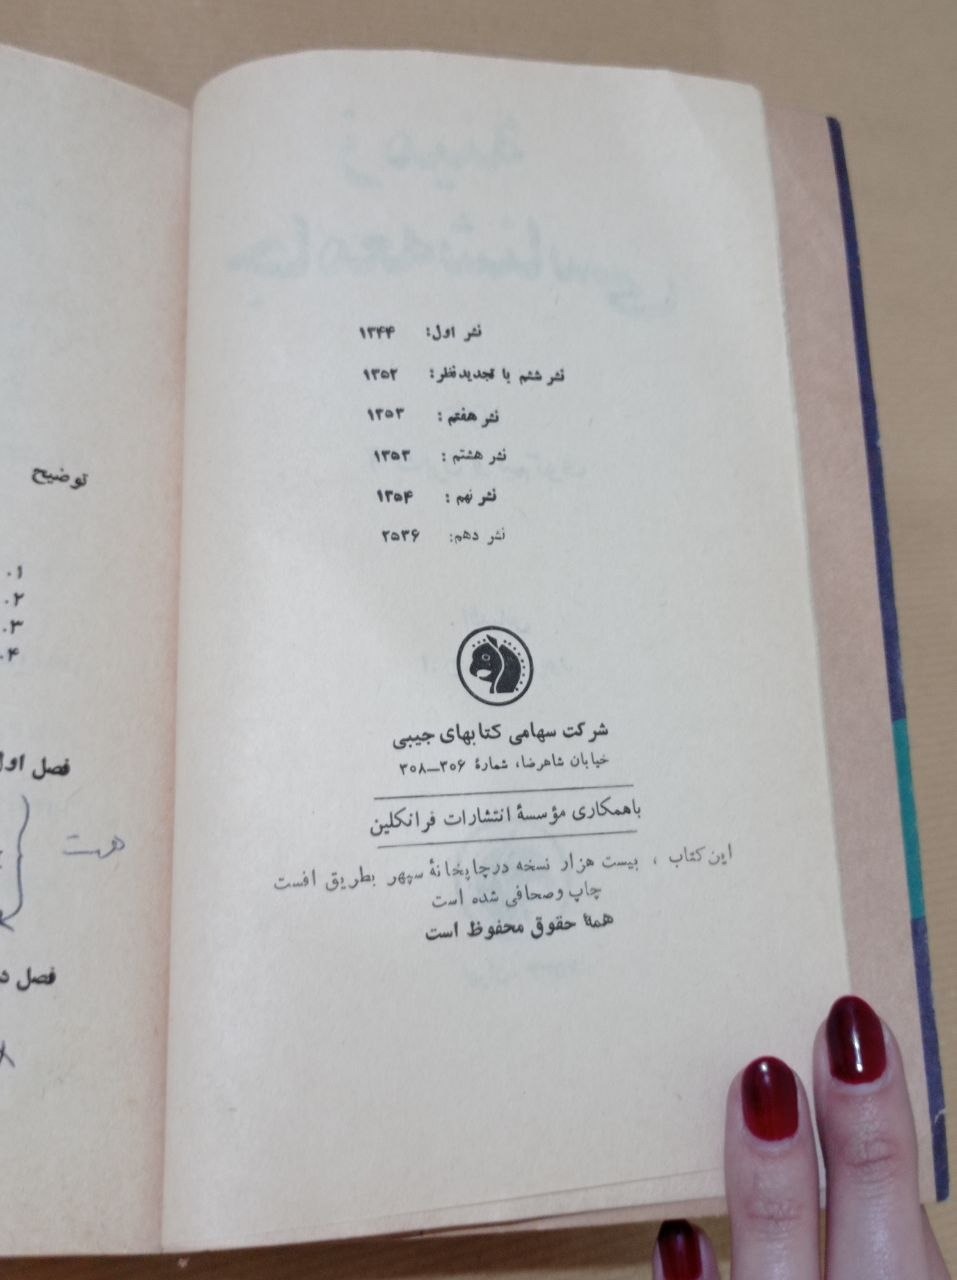 نشر اول: ۱۳۴۴
نشر ششم با تجدیدنظر: ۱۳۵۲
نشر هفتم: ۱۳۵۳
نشر هشتم: ۱۳۵۳
نشر نهم: ۱۳۵۴
نشر دهم: ۲۵۳۶
شرکت سهامی کتابهای جیبی
خیابان شاهرضا، شمارهٔ ۳۰۶–۳۰۸
باهمکاری مؤسسهٔ انتشارات فرانکلین
این کتاب، بیست هزار نسخه درچاپخانهٔ سپهر بطریق افست
چاپ وصحافی شده است
همهٔ حقوق محفوظ است
توضیح
۱.
۲.
۳.
۴.
فصل اول
فصل
زمینهٔ
جامعه‌شناسی